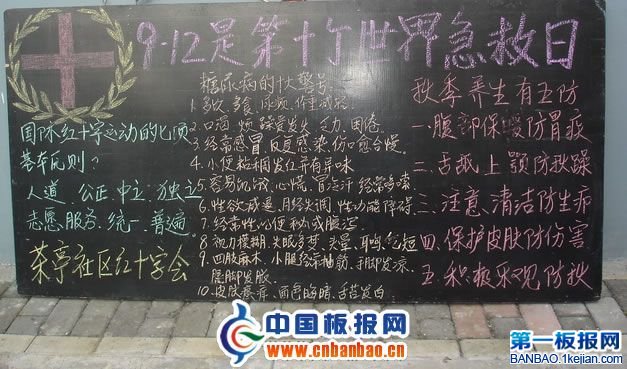 9.12是第十个世界急救日
国际红十字运动的七项
基本原则?
人道 公正 中立 独立
志愿服务 统一 普遍
茶亭社区红十字会
糖尿病的十大警号
1.多饮 多食 尿频 体重减轻
2.口渴 烦躁 易发火 乏力 困倦
3.经常感冒反反复感染 伤口愈合慢
4.小便粘稠发红并有异味
5.容易饥饿 心慌 冒虚汗 经常哆嗦
6.性欲减退 月经失调 性功能障碍
7.经常性的便秘或腹泻
8.视力模糊 失眠多梦 头晕 耳鸣 气短
9.四肢麻木 小腿经常抽筋 手脚发凉
腿脚发胀
10.皮肤瘙痒 面色晦暗 舌苔发白
秋季养生有五防
一.腹部保暖防胃疾
二.舌抵上颚防秋燥
三.注意清洁防生疮
四.保护皮肤防伤害
五.积极乐观防秋
中国板报网
www.cnbanbao.cn
第一板报网
BANBAO.1kejian.com